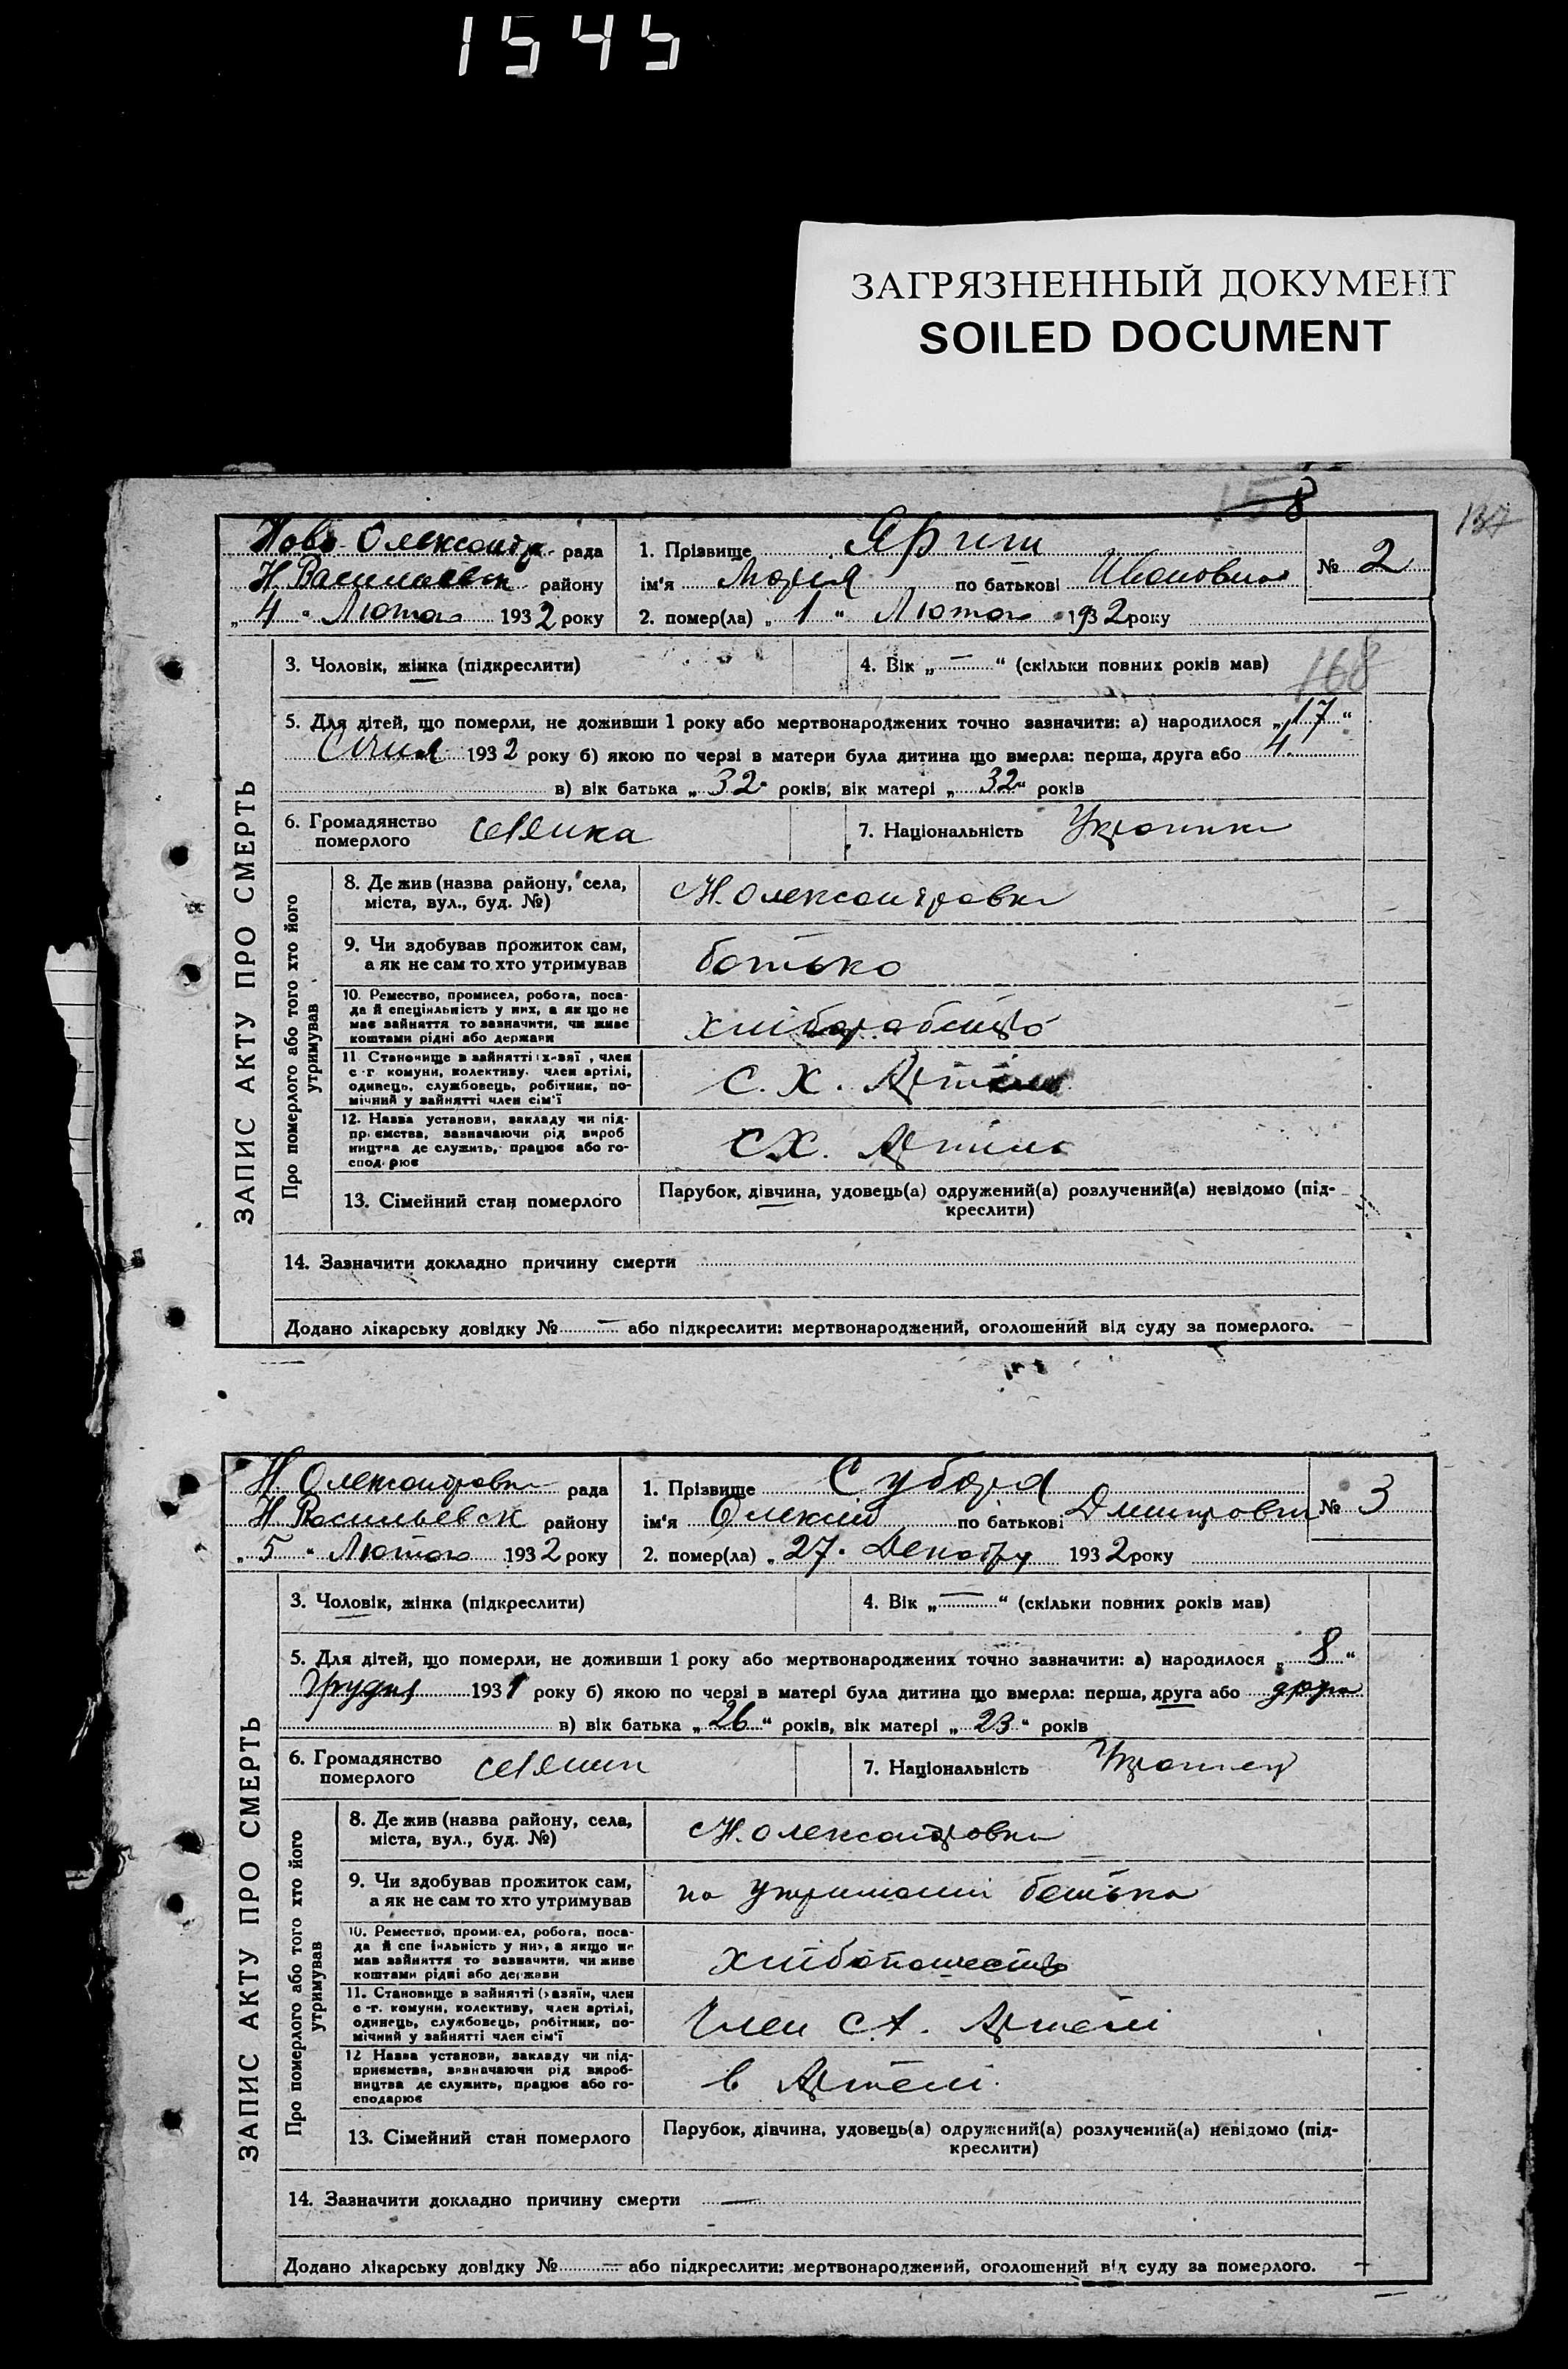 1545
ЗАГРЯЗНЕННЫЙ ДОКУМЕНТ
SOILED DOCUMENT
8
137
Ново-Олександр. рада
Н Васильевск району
„ 4 “ Лютого 1932 року
1. Прізвище Яриш
ім'я Марія по батькові Ивановна
№ 2
2. помер(ла) „ 1 “ Лютого 1932 року
3. Чоловік, жінка (підкреслити)
4. Вік „ — “ (скільки повних років мав)
168
5. Для дітей, що померли, не доживши 1 року або мертвонароджених точно зазначити: а) народилося „ 17 “
Січня 1932 року б) якою по черзі в матери була дитина що вмерла: перша, друга або 4
в) вік батька „ 32 “ років, вік матері „ 32 “ років
6. Громадянство померлого селянка
7. Національність Українка
ЗАПИС АКТУ ПРО СМЕРТЬ
Про померлого або того хто його утримував
8. Де жив (назва району, села,
міста, вул., буд. №) Н. Олександровка
9. Чи здобував прожиток сам,
а як не сам то хто утримував батько
10. Ремество, промисел, робота, поса-
да й спеціяльність у них, а як що не
має зайняття то зазначити, чи живе
коштами рідні або держави
11. Становище в зайнятті (хазяї, член
с-г. комуни, колективу, член артілі,
одинець, службовець, робітник, по-
мічний у зайнятті член сім'ї С. Х. Артіль
12. Назва установи, закладу чи під-
приємства, зазначаючи рід вироб
ництва де служить, працює або го-
сподарює СХ. Артіль
13. Сімейний стан померлого
Парубок, дівчина, удовець(а) одружений(а) розлучений(а) невідомо (під-
креслити)
14. Зазначити докладно причину смерти
Додано лікарську довідку № — або підкреслити: мертвонароджений, оголошений від суду за померлого.
Н. Олександровка рада
Н Васильевск району
„ 5 “ Лютого 1932 року
1. Прізвище Субота
ім'я Олексій по батькові Дмитрович
№ 3
2. помер(ла) „ 27 “ Декабря 1932 року
3. Чоловік, жінка (підкреслити)
4. Вік „ — “ (скільки повних років мав)
5. Для дітей, що померли, не доживши 1 року або мертвонароджених точно зазначити: а) народилося „ 8 “
Грудня 1931 року б) якою по черзі в матері була дитина що вмерла: перша, друга або друга
в) вік батька „ 26 “ років, вік матері „ 23 “ років
6. Громадянство померлого селянин
7. Національність Украинец
ЗАПИС АКТУ ПРО СМЕРТЬ
Про померлого або того хто його утримував
8. Де жив (назва району, села,
міста, вул., буд. №) Н. Олександровка
9. Чи здобував прожиток сам,
а як не сам то хто утримував на утриманні батька
10. Ремество, промисел, робота, поса-
да й спеціяльність у них, а якщо не
мав зайняття то зазначити, чи живе
коштами рідні або держави
11. Становище в зайнятті (хазяїн, член
с-г. комуни, колективу, член артілі,
одинець, службовець, робітник, по-
мічний у зайнятті член сім'ї Член Артелі
12. Назва установи, закладу чи під-
приємства, зазначаючи рід вироб-
ництва де служить, працює або го-
сподарює в Артелі
13. Сімейний стан померлого
Парубок, дівчина, удовець(а) одружений(а) розлучений(а) невідомо (під-
креслити)
14. Зазначити докладно причину смерти —
Додано лікарську довідку № — або підкреслити: мертвонароджений, оголошений від суду за померлого.